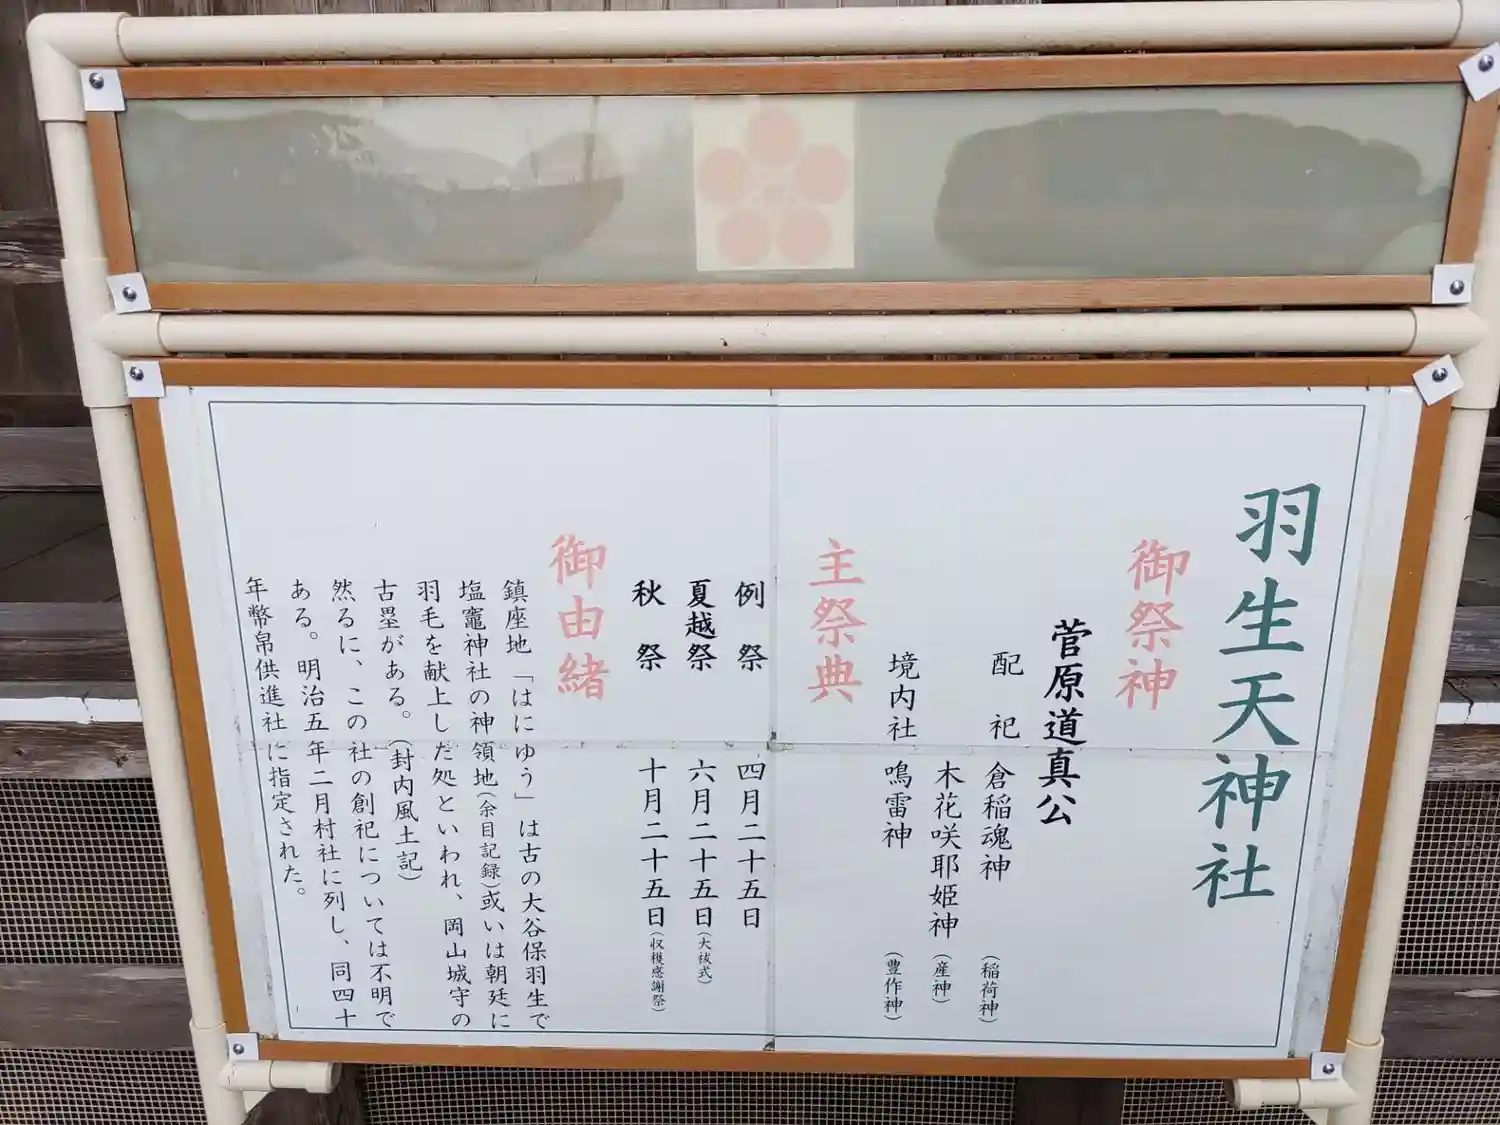 羽生天神社
御祭神
菅原道真公
配祀 倉稲魂神 (稲荷神)
木花咲耶姫神 (産神)
境内社 鳴雷神 (豊作神)
主祭典
例祭 四月二十五日
夏越祭 六月二十五日(大祓式)
秋祭 十月二十五日(収穫感謝祭)
御由緒
鎮座地 「はにゆう」は古の大谷保羽生で
塩竈神社の神領地(余目記録)或いは朝廷に
羽毛を献上した処といわれ、岡山城守の
古塁がある。(封内風土記)
然るに、この社の創祀については不明で
ある。明治五年二月村社に列し、同四十
年幣帛供進社に指定された。